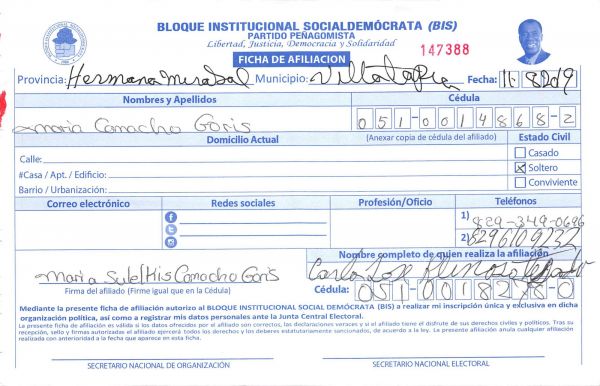 BLOQUE INSTITUCIONAL SOCIALDEMÓCRATA (BIS)
PARTIDO PEÑAGOMISTA
Libertad, Justicia, Democracia y Solidaridad
FICHA DE AFILIACION
147388
Provincia: Hermana Mirabal Municipio: Villa Tapia Fecha: 11-8-2019
Nombres y Apellidos
Cédula
Maria Camacho Goris
051-0014868-2
Domicilio Actual
(Anexar copia de cédula del afiliado)
Estado Civil
Calle:
#Casa / Apt. / Edificio:
Barrio / Urbanización:
Casado
Soltero
Conviviente
Correo electrónico
Redes sociales
Profesión/Oficio
Teléfonos
1) 829-349-0696
2) 8296109232
Nombre completo de quien realiza la afiliación
Maria Camacho Goris
Carlos Jose
Firma del afiliado (Firme igual que en la Cédula)
Cédula: 051-0018278-0
Mediante la presente ficha de afiliación autorizo al BLOQUE INSTITUCIONAL SOCIAL DEMÓCRATA (BIS) a realizar mi inscripción única y exclusiva en dicha
organización política, así como a registrar mis datos personales ante la Junta Central Electoral.
La presente ficha de afiliación es válida si los datos ofrecidos por el afiliado son correctos, las declaraciones veraces y si el afiliado tiene el disfrute de sus derechos civiles y políticos. Tras su
recepción, sello y firmas autorizadas el afiliado ejercerá todos los derechos y los deberes estatutariamente sancionados, de acuerdo a la ley. La presente afiliación anula cualquier afiliación
realizada con anterioridad a la fecha que aparece en esta ficha.
SECRETARIO NACIONAL DE ORGANIZACIÓN
SECRETARIO NACIONAL ELECTORAL